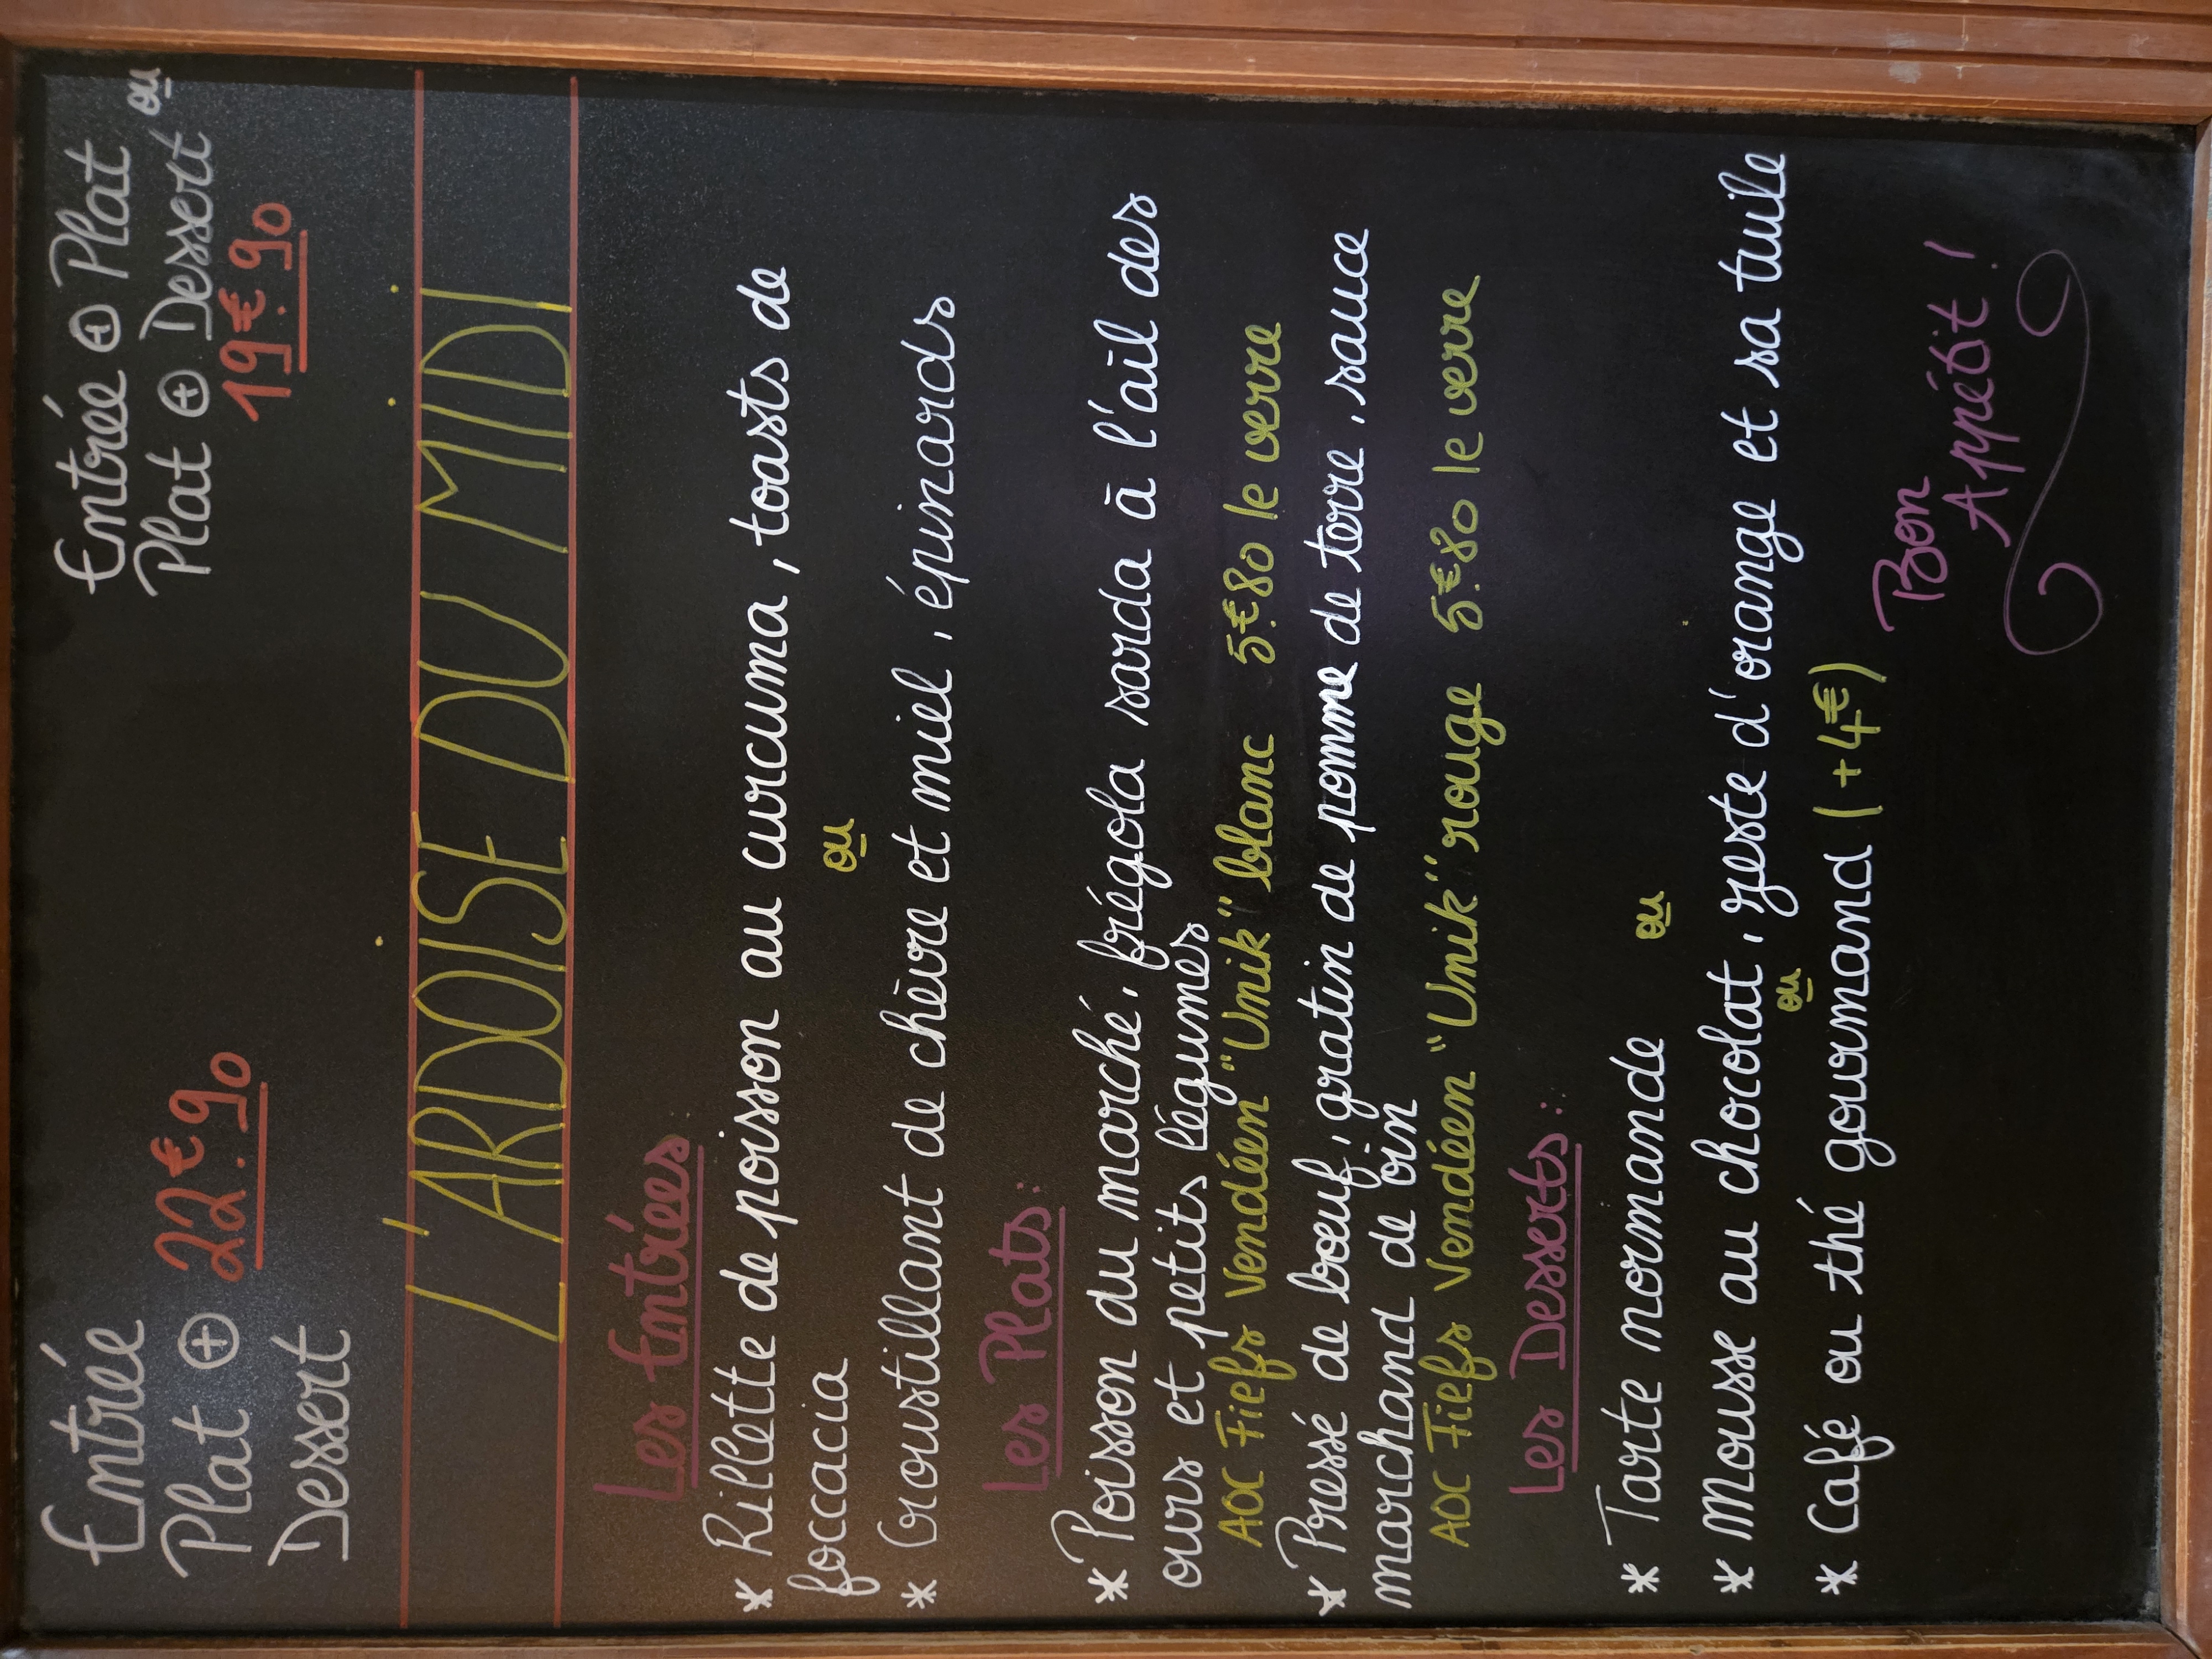 Entrée
Plat ⊕ 22.€90
Dessert
Entrée ⊕ Plat ou
Plat ⊕ Dessert
19.€90
L'ARDOISE DU MIDI
Les Entrées :
* Rillette de poisson au curcuma, toasts de
foccacia
ou
* Croustillant de chèvre et miel, épinards
Les Plats :
* Poisson du marché, frégola sarda à l'ail des
ours et petits légumes
AOC Fiefs Vendéen "Unik" blanc 5.€80 le verre
* Pressé de bœuf, gratin de pomme de terre, sauce
marchand de oin
AOC Fiefs Vendéen "Unik" rouge 5.€80 le verre
Les Desserts :
* Tarte normande
ou
* Mousse au chocolat, zeste d'orange et sa tuile
ou
* Café ou thé gourmand (+4€)
Bon
Appétit !